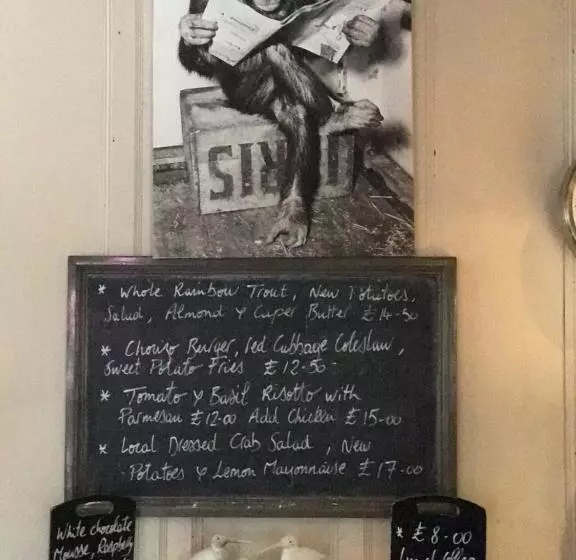 SIRIS
* Whole Rainbow Trout, New Potatoes,
Salad, Almond & Caper Butter £14-50
* Chorizo Burger, red Cabbage Coleslaw,
Sweet Potato Fries £12.50
* Tomato & Basil Risotto with
Parmesan £12-00 Add Chicken £15-00
* Local Dressed Crab Salad, New
Potatoes & Lemon Mayonnaise £17-00
White chocolate
Mousse, Raspberry
* £8-00